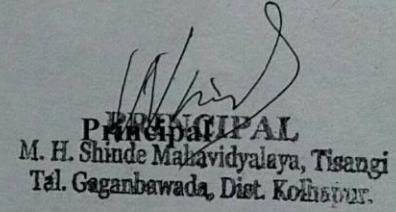 Principal
PRINCIPAL
M. H. Shinde Mahavidyalaya, Tisangi
Tal. Gaganbawada, Dist. Kolhapur.